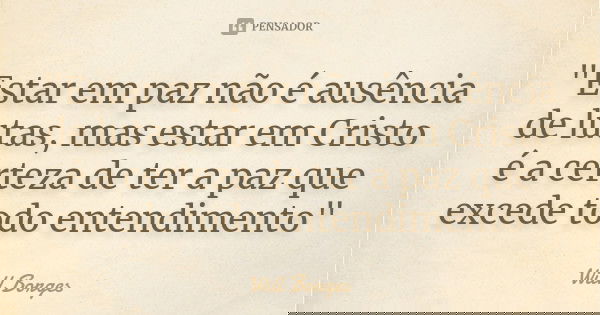 PENSADOR
"Estar em paz não é ausência
de lutas, mas estar em Cristo
é a certeza de ter a paz que
excede todo entendimento"
Will Borges